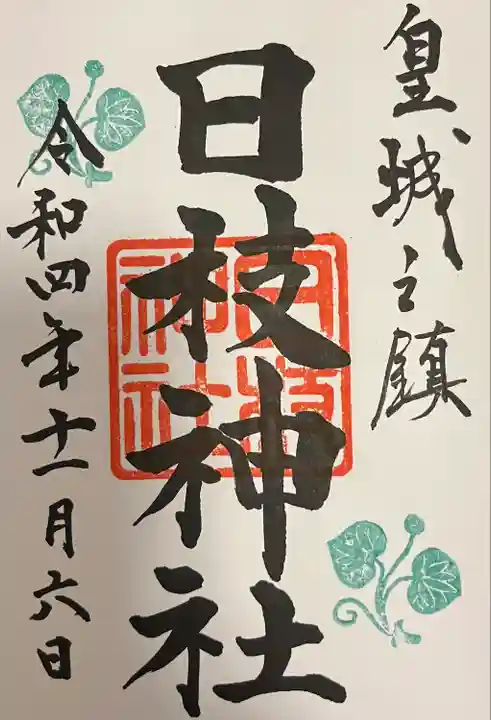 皇城之鎮
日枝神社
日枝神社
令和四年十一月六日